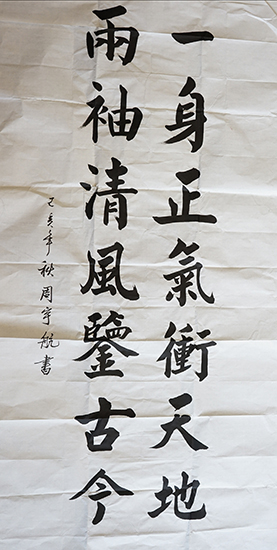 一身正氣衝天地
兩袖清風鑒古今
己亥年秋周宇航書